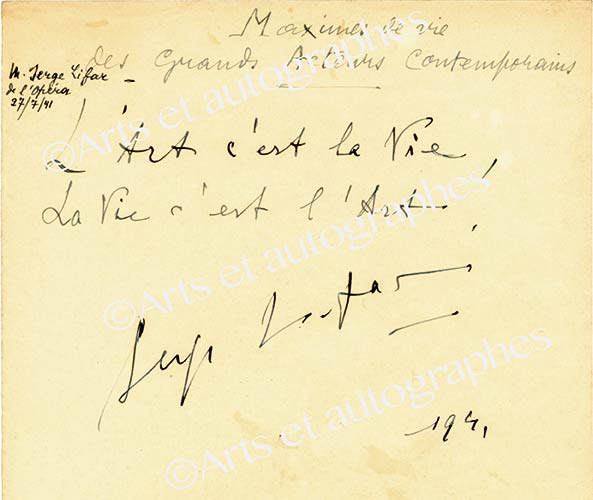 Maximes de vie
des Grands Acteurs Contemporains
M. Serge Lifar
de l'Opéra
27/7/41
L'Art c'est la Vie
La Vie c'est l'Art!
Serge Lifar
1941
©Arts et autographes
©Arts et autographes
©Arts et autographes